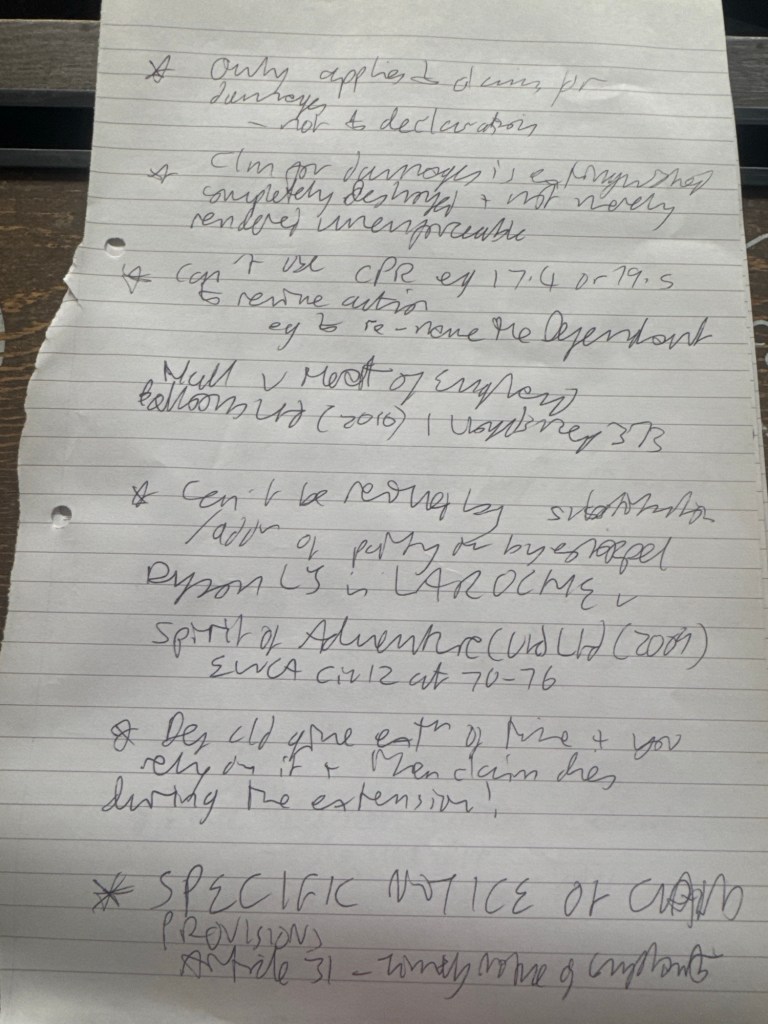 * Only applies to claims for
damages
- not to declarations
* Clm for damages is extinguished
completely destroyed + not merely
rendered unenforceable
* Can't use CPR eg 17.4 or 19.5
to revive action
eg to re-name the Defendant
Hall v Heart of England
Balloons Ltd (2010) 1 Lloyd's Rep 373
* Can't be revived by substitution
/addn of party or by estoppel
Dyson LJ in LAROCHE v
Spirit of Adventure (UK) Ltd (2009)
EWCA Civ 12 at 70-76
* Def cld give extn of time + you
rely on it + then claim dies
during the extension!
* SPECIFIC NOTICE OF CLAIM
PROVISIONS
Article 31 - timely notice of complaints